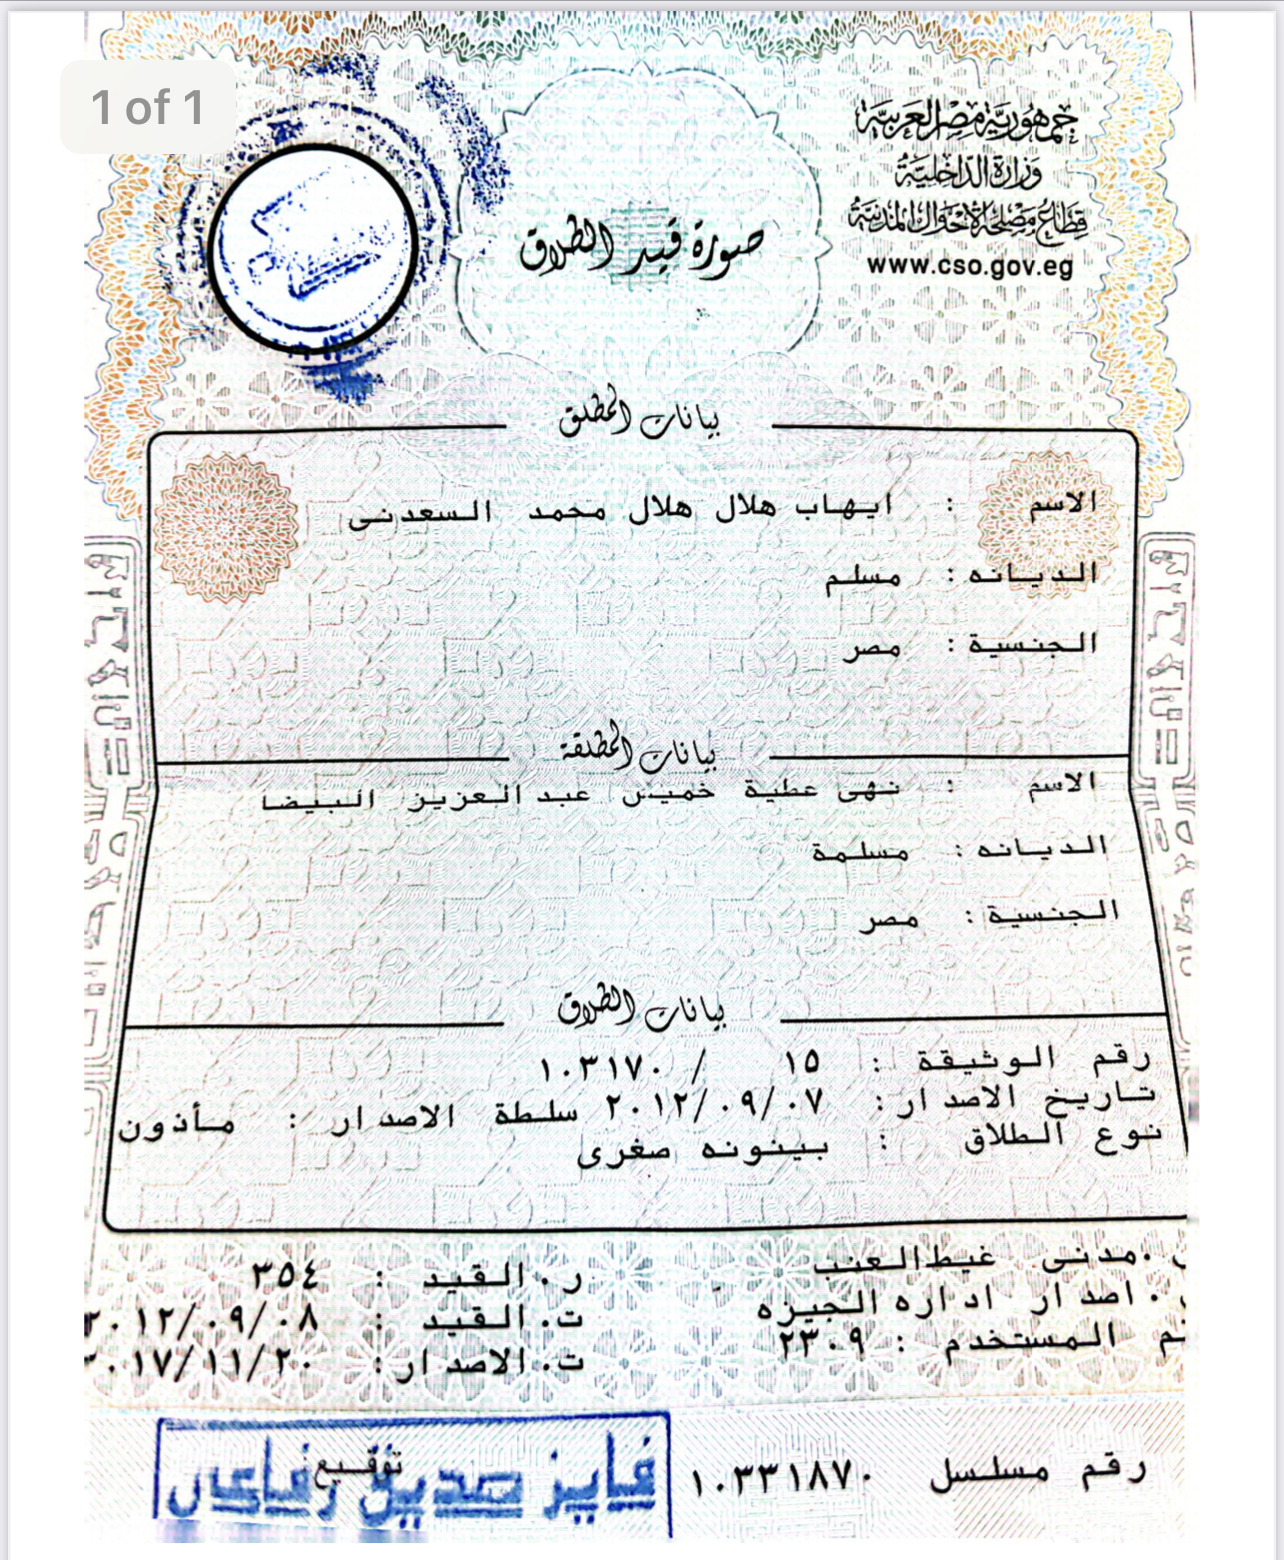 1 of 1
جمهورية مصر العربية
وزارة الداخلية
قطاع مصلحة الأحوال المدنية
www.cso.gov.eg
صورة قيد الطلاق
بيانات المطلق
الاسم : ايهاب هلال هلال محمد السعدنى
الديانه : مسلم
الجنسية : مصر
بيانات المطلقة
الاسم : نهى عطية خميس عبد العزيز البيضا
الديانه : مسلمة
الجنسية : مصر
بيانات الطلاق
رقم الوثيقة : ١٥ / ١٠٣١٧٠
تاريخ الاصدار : ٢٠١٢/٠٩/٠٧ سلطة الاصدار : مأذون
نوع الطلاق : بينونه صغرى
مدنى غيط العنب ر . القيد : ٣٥٤
اصدار اداره الجيزه ت. القيد : ٢٠١٢/٠٩/٠٨
المستخدم : ٢٣٠٩ ت. الاصدار : ٢٠١٧/١١/٢٠
رقم مسلسل ١٠٣٣١٨٧٠ توقيع
فايز صديق رفاعى